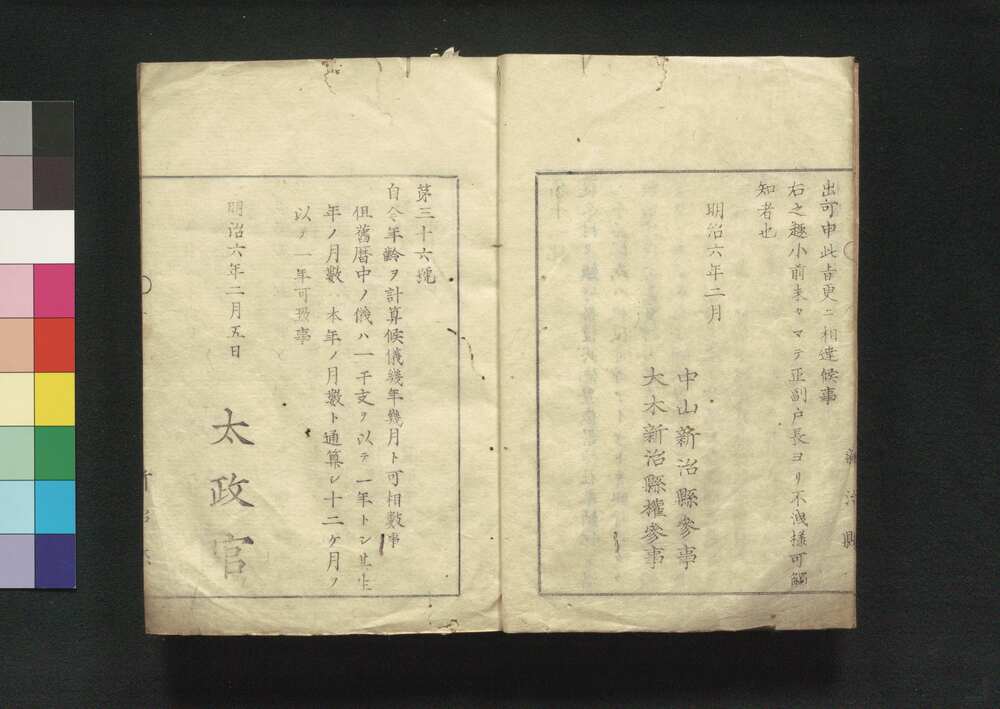 出可申此旨更ニ相達候事
右之趣小前末々マテ正副戸長ヨリ不洩様可觸
知者也
明治六年二月
中山新治縣參事
大木新治縣權參事
第三十六號
自今年齡ヲ計算候儀幾年幾月ト可相數事
但舊曆中ノ儀ハ一干支ヲ以テ一年トシ其生
年ノ月數ハ本年ノ月數ト通算シ十二ケ月ヲ
以テ一年可致事
明治六年二月五日
太政官